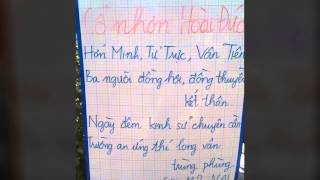 Cổ nhơn Hoài Đức
Hớn Minh, Tư Trực, Vân Tiên
Ba người đồng hội, đồng thuyền
kết thân
Ngày đêm kinh sử chuyên cần
Trường an ứng thí long vân
trùng phùng